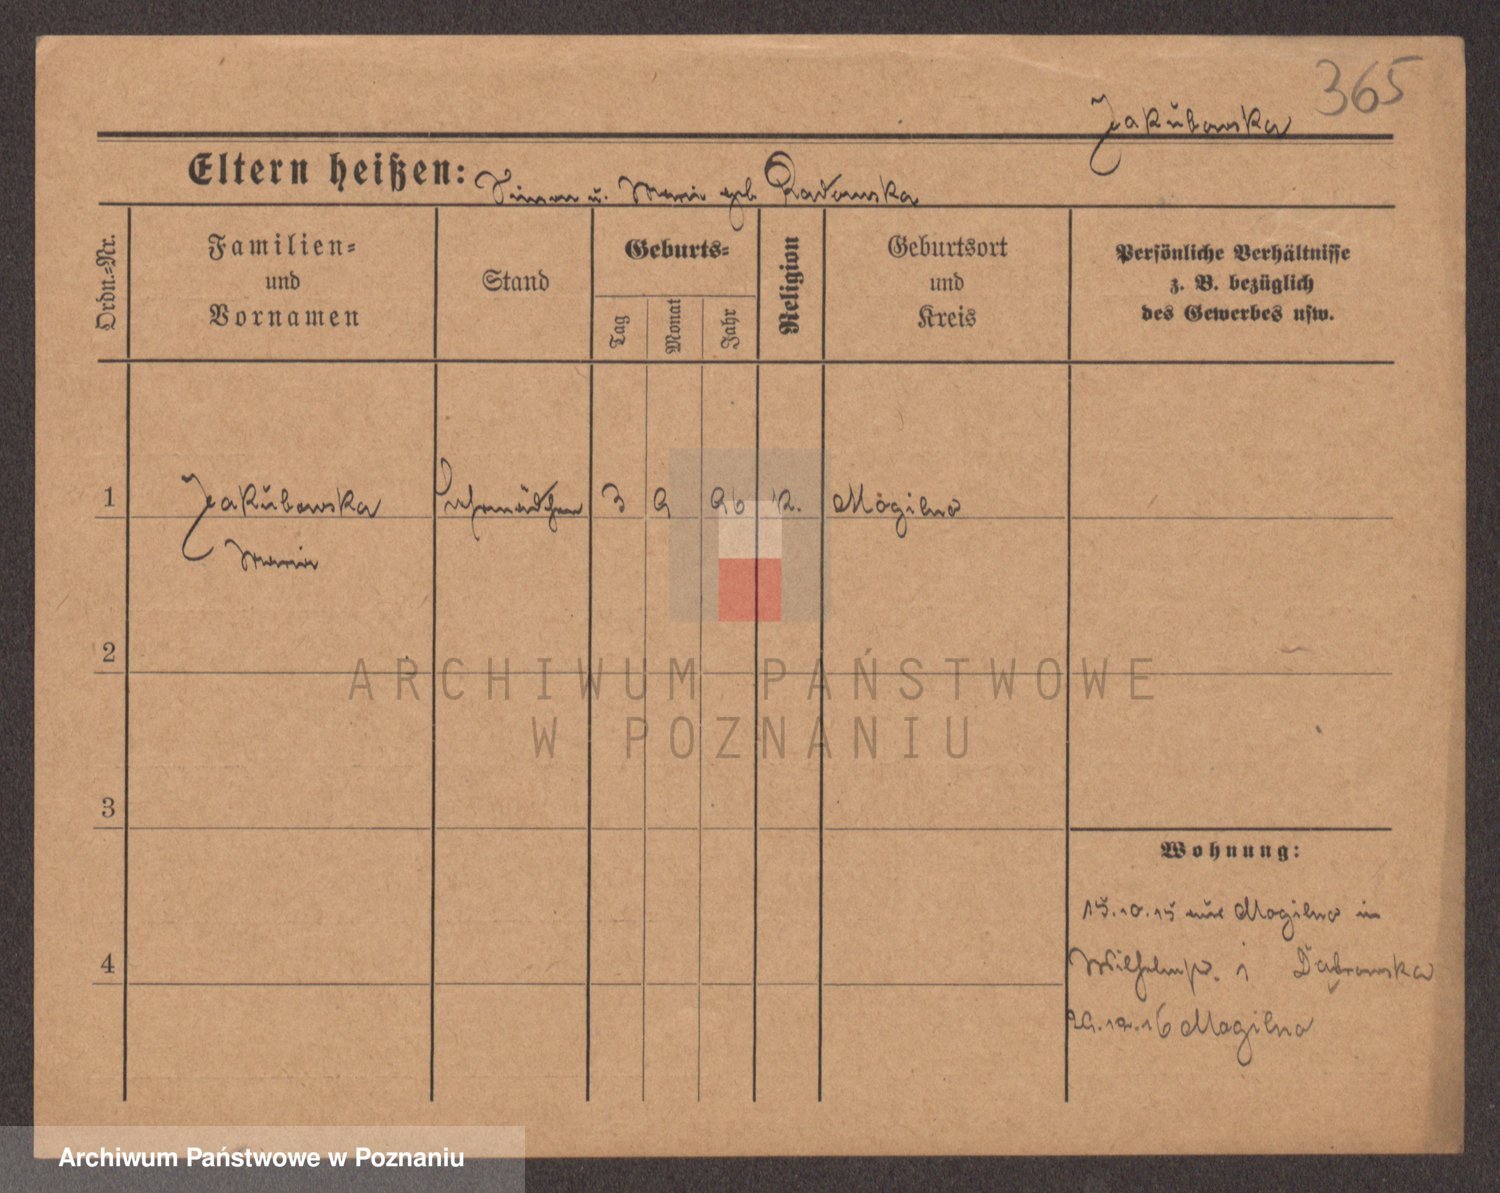 365
Jakubowska
Eltern heißen: Simon u. Marie geb Radomska
Ordn.=Nr.
Familien=
und
Vornamen
Stand
Geburts=
Tag
Monat
Jahr
Religion
Geburtsort
und
Kreis
Persönliche Verhältnisse
z. B. bezüglich
des Gewerbes usw.
1 Jakubowska 3 9 96 K. Mogilno
Maria
2
ARCHIWUM PAŃSTWOWE
W POZNANIU
3
Wohnung:
15.10.15 aus Mogilno in
4
Wilhelmpl. 1 Dabrowska
29.12.16 Mogilno
Archiwum Państwowe w Poznaniu